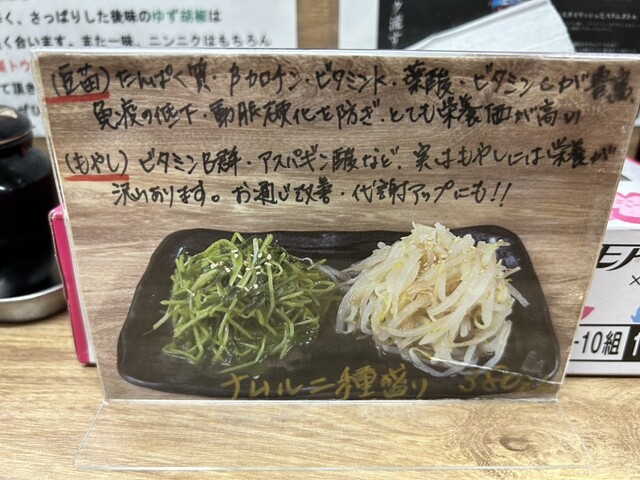 く、さっぱりした後味のゆず胡椒は
く合います。また一味、ニンニクはもちろん
(豆苗) たんぱく質・βカロテン・ビタミンK・葉酸・ビタミンCが豊富。
免疫の低下・動脈硬化を防ぎ、とても栄養価が高い
(もやし) ビタミンB群・アスパギン酸など、実はもやしには栄養が
沢山あります。お通じ改善・代謝アップにも!!
ナムル二種盛り 380
-10組